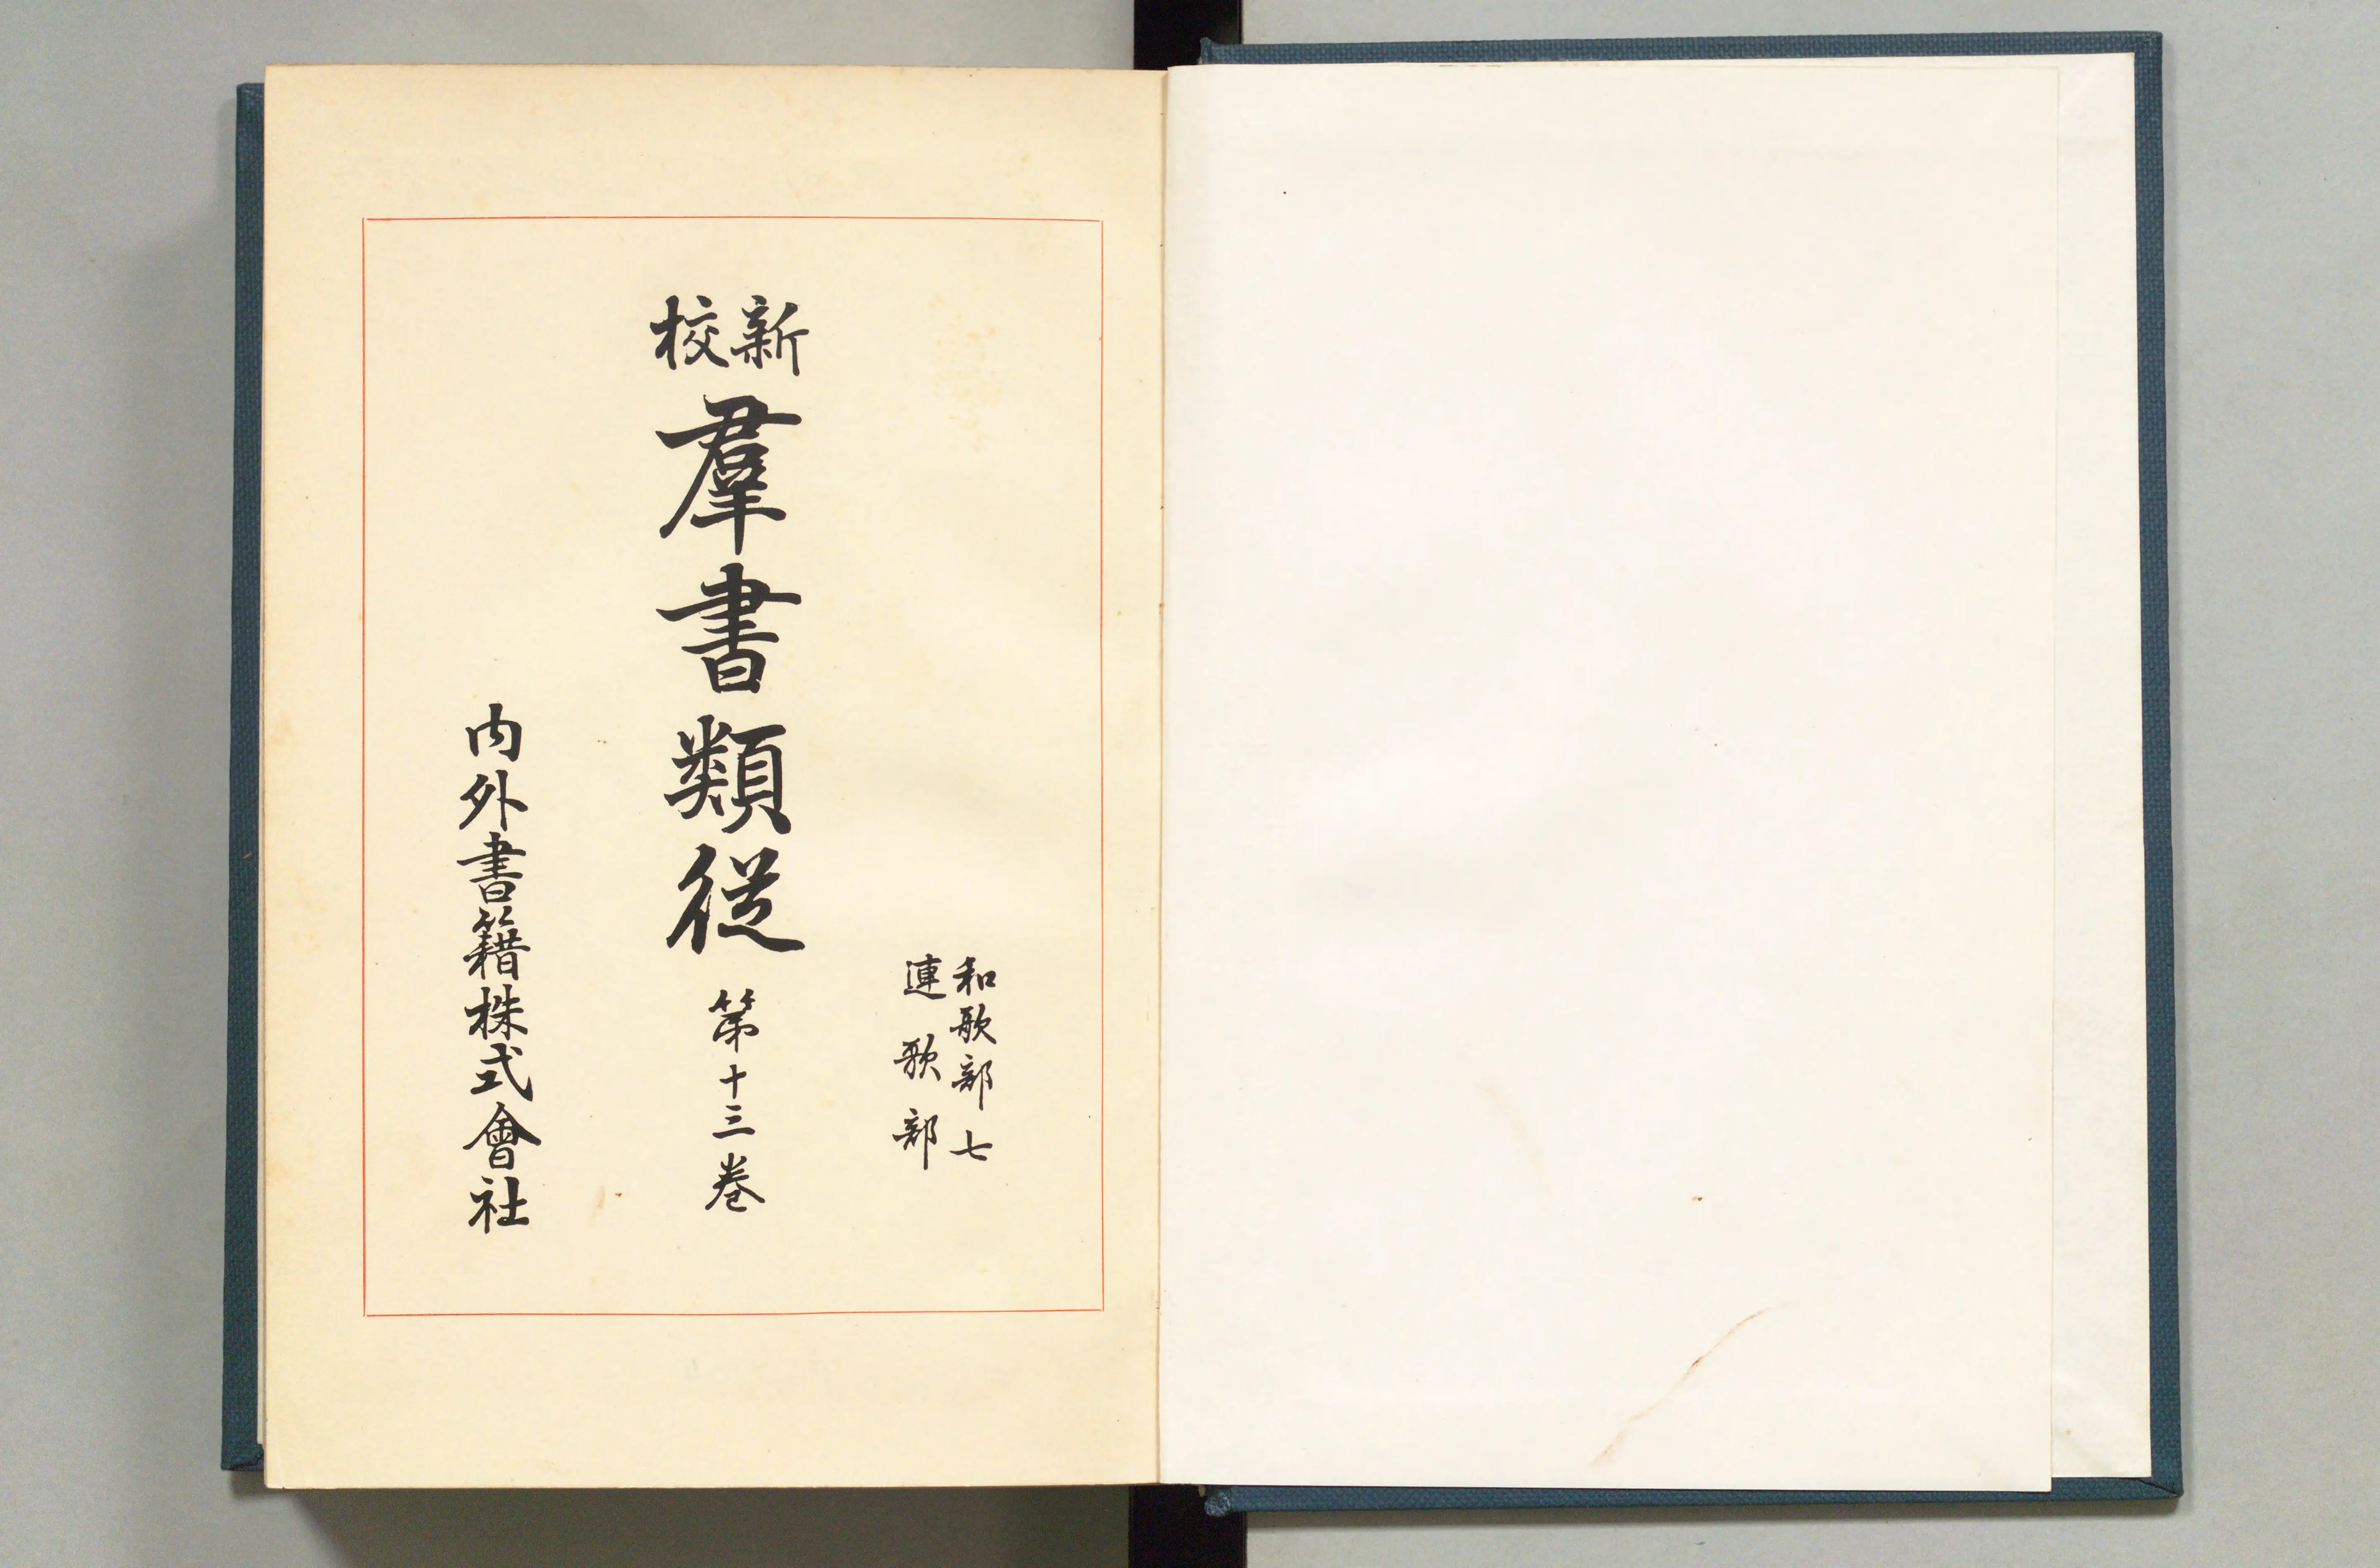 和歌部七
連歌部
新校羣書類従第十三巻
内外書籍株式會社